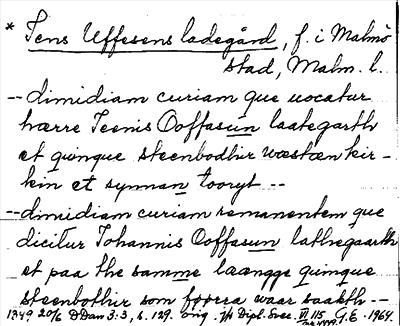 * Jens Uffesens ladegård, f. i Malmö
stad, Malm. l.
-- dimidiam curiam que uocatur
hærre Jeenis Ooffasun laategarth
et quinque steenbodhir wæstæn kir-
kin et synnan tooryt --
-- dimidiam curiam remanentem que
dicitur Johannis Ooffasun lathegaarth
et paa the samme læangge quinque
steenbothir som førra waar saakth --
1349 20/6 DDan 3:3, s. 129. orig. jfr Dipl. Svec. VI 115 G.E. 1964.